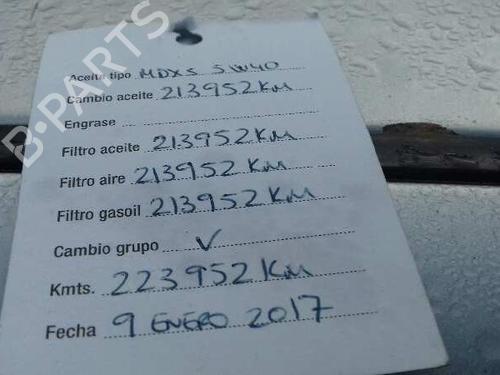 B-PARTS
Aceite tipo MDXS 5W40
Cambio aceite 213952 KM
Engrase
Filtro aceite 213952 KM
Filtro aire 213952 KM
Filtro gasoil 213952 KM
Cambio grupo V
Kmts. 223952 KM
Fecha 9 ENERO 2017